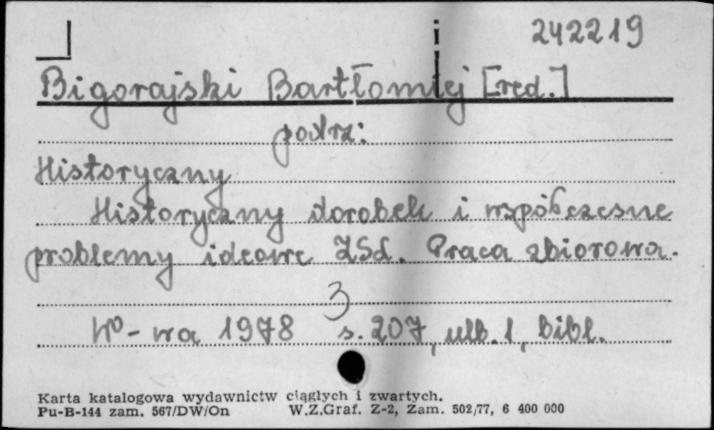 242219
Bigorajski Bartłomiej [red.]
patrz:
Historyczny
Historyczny dorobek i współczesne
problemy ideowe ZSL. Praca zbiorowa.
3
W-wa 1978 s. 207, ulb. 1, bibl.
Karta katalogowa wydawnictw ciągłych i zwartych.
Pu-B-144 zam. 567/DW/On W.Z.Graf. Z-2, Zam. 502/77, 6 400 000